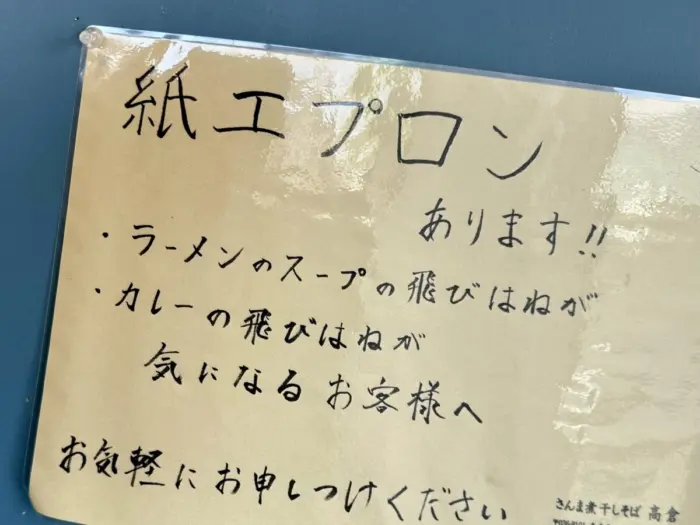 紙エプロン
あります!!
・ラーメンのスープの飛びはねが
・カレーの飛びはねが
気になるお客様へ
お気軽にお申しつけください
さんま煮干しそば 高倉